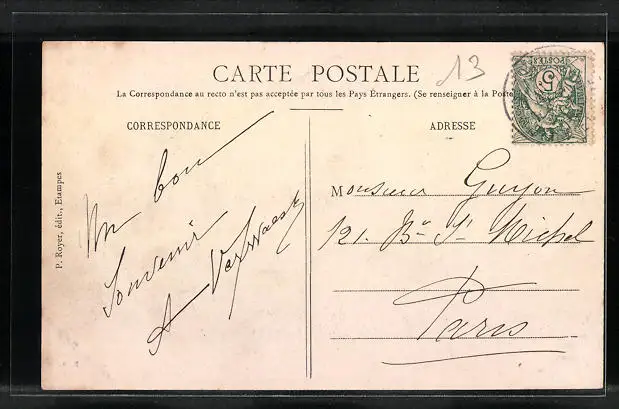 13
CARTE POSTALE
La Correspondance au recto n'est pas acceptée par tous les Pays Étrangers. (Se renseigner à la Poste
POSTES
5
CORRESPONDANCE
ADRESSE
Un bon
Souvenir
A
Monsieur Guyon
121. Bd St Michel
Paris
P. Royer, édit., Etampes